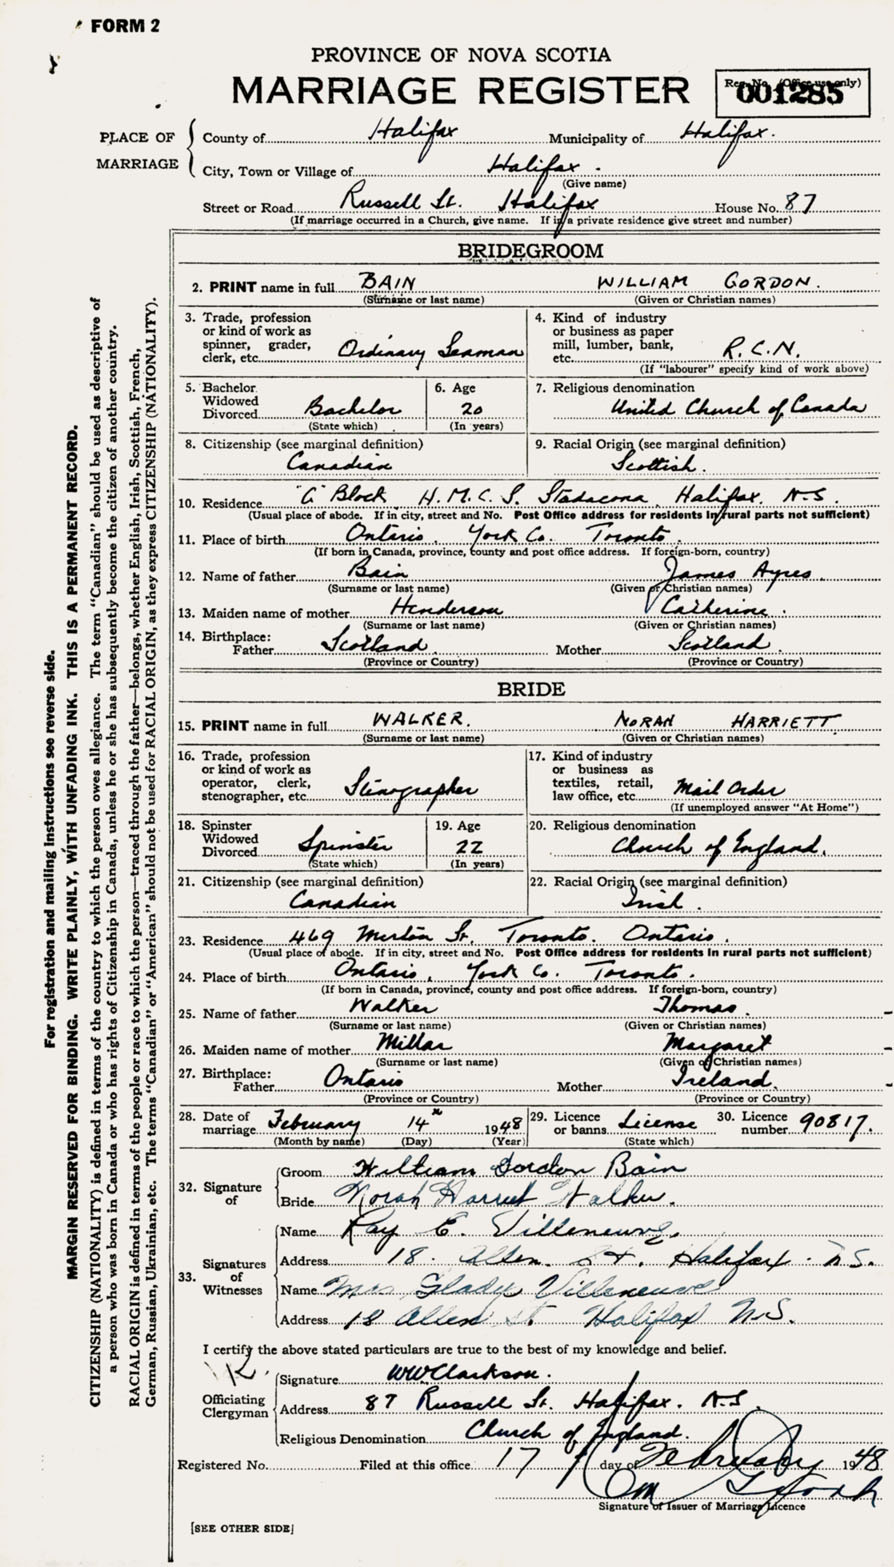 FORM 2
PROVINCE OF NOVA SCOTIA
MARRIAGE REGISTER
Reg. No. (Office use only)
001285
PLACE OF MARRIAGE
County of Halifax Municipality of Halifax.
City, Town or Village of Halifax.
(Give name)
Street or Road Russell St. Halifax House No. 87
(If marriage occurred in a Church, give name. If in a private residence give street and number)
BRIDEGROOM
2. PRINT name in full BAIN WILLIAM GORDON.
(Surname or last name) (Given or Christian names)
3. Trade, profession or kind of work as spinner, grader, clerk, etc. Ordinary Seaman
4. Kind of industry or business as paper mill, lumber, bank, etc. R.C.N.
(If "labourer" specify kind of work above)
5. Bachelor Widowed Divorced Bachelor
(State which)
6. Age 20
(In years)
7. Religious denomination United Church of Canada
8. Citizenship (see marginal definition) Canadian
9. Racial Origin (see marginal definition) Scottish.
10. Residence Block H.M.C.S. Stadacona, Halifax. N.S.
(Usual place of abode. If in city, street and No. Post Office address for residents in rural parts not sufficient)
11. Place of birth Ontario, York Co. Toronto.
(If born in Canada, province, county and post office address. If foreign-born, country)
12. Name of father Bain James Ayres.
(Surname or last name) (Given or Christian names)
13. Maiden name of mother Henderson Catherine.
(Surname or last name) (Given or Christian names)
14. Birthplace: Father Scotland. Mother Scotland.
(Province or Country) (Province or Country)
BRIDE
15. PRINT name in full WALKER. NORAH HARRIETT.
(Surname or last name) (Given or Christian names)
16. Trade, profession or kind of work as operator, clerk, stenographer, etc. Stenographer
17. Kind of industry or business as textiles, retail, law office, etc. Mail Order
(If unemployed answer "At Home")
18. Spinster Widowed Divorced Spinster
(State which)
19. Age 22
(In years)
20. Religious denomination Church of England.
21. Citizenship (see marginal definition) Canadian
22. Racial Origin (see marginal definition) Irish.
23. Residence 469 Merton St. Toronto. Ontario.
(Usual place of abode. If in city, street and No. Post Office address for residents in rural parts not sufficient)
24. Place of birth Ontario, York Co. Toronto.
(If born in Canada, province, county and post office address. If foreign-born, country)
25. Name of father Walker Thomas.
(Surname or last name) (Given or Christian names)
26. Maiden name of mother Millar Margaret
(Surname or last name) (Given or Christian names)
27. Birthplace: Father Ontario Mother Ireland.
(Province or Country) (Province or Country)
28. Date of marriage February 14th 1948
(Month by name) (Day) (Year)
29. Licence or banns License
(State which)
30. Licence number 90817.
32. Signature of
Groom William Gordon Bain
Bride Norah Harriet Walker.
33. Signatures of Witnesses
Name Ray E. Villeneuve.
Address 18. Allen St. Halifax. N.S.
Name Mrs Gladys Villeneuve
Address 18 Allen St Halifax N.S.
I certify the above stated particulars are true to the best of my knowledge and belief.
Officiating Clergyman
Signature WWClarkson.
Address 87 Russell St. Halifax. N.S.
Religious Denomination Church of England.
Registered No. Filed at this office 17 day of February 1948
Signature of Issuer of Marriage Licence
[SEE OTHER SIDE]
For registration and mailing instructions see reverse side.
MARGIN RESERVED FOR BINDING. WRITE PLAINLY, WITH UNFADING INK. THIS IS A PERMANENT RECORD.
CITIZENSHIP (NATIONALITY) is defined in terms of the country to which the person owes allegiance. The term "Canadian" should be used as descriptive of
a person who was born in Canada or who has rights of Citizenship in Canada, unless he or she has subsequently become the citizen of another country.
RACIAL ORIGIN is defined in terms of the people or race to which the person—traced through the father—belongs, whether English, Irish, Scottish, French,
German, Russian, Ukrainian, etc. The terms "Canadian" or "American" should not be used for RACIAL ORIGIN, as they express CITIZENSHIP (NATIONALITY).